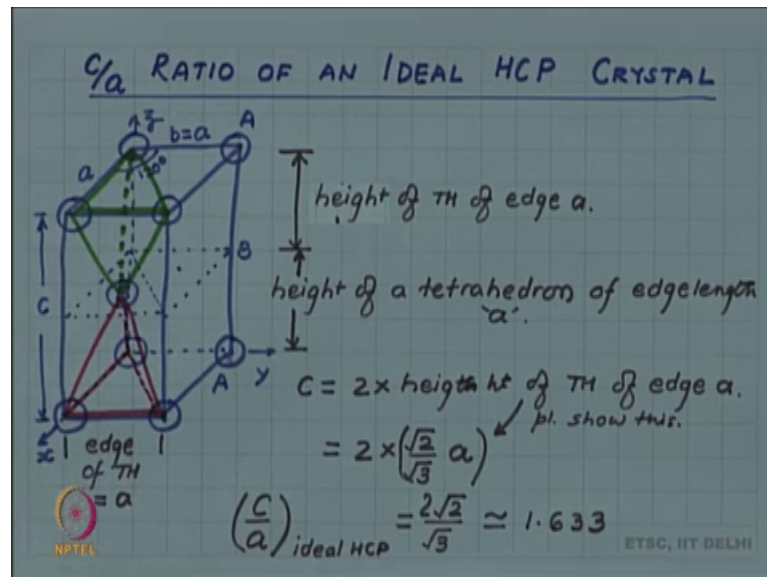 c/a RATIO OF AN IDEAL HCP CRYSTAL
z
b=a
A
a
120°
height of TH of edge a.
B
C
height of a tetrahedron of edgelength
'a'.
A
y
C = 2 x heigth ht of TH of edge a.
pl. show this.
x
edge
of TH
= a
= 2 x (√2/√3 a)
(c/a) ideal HCP = 2√2/√3 ≃ 1.633
NPTEL
ETSC, IIT DELHI